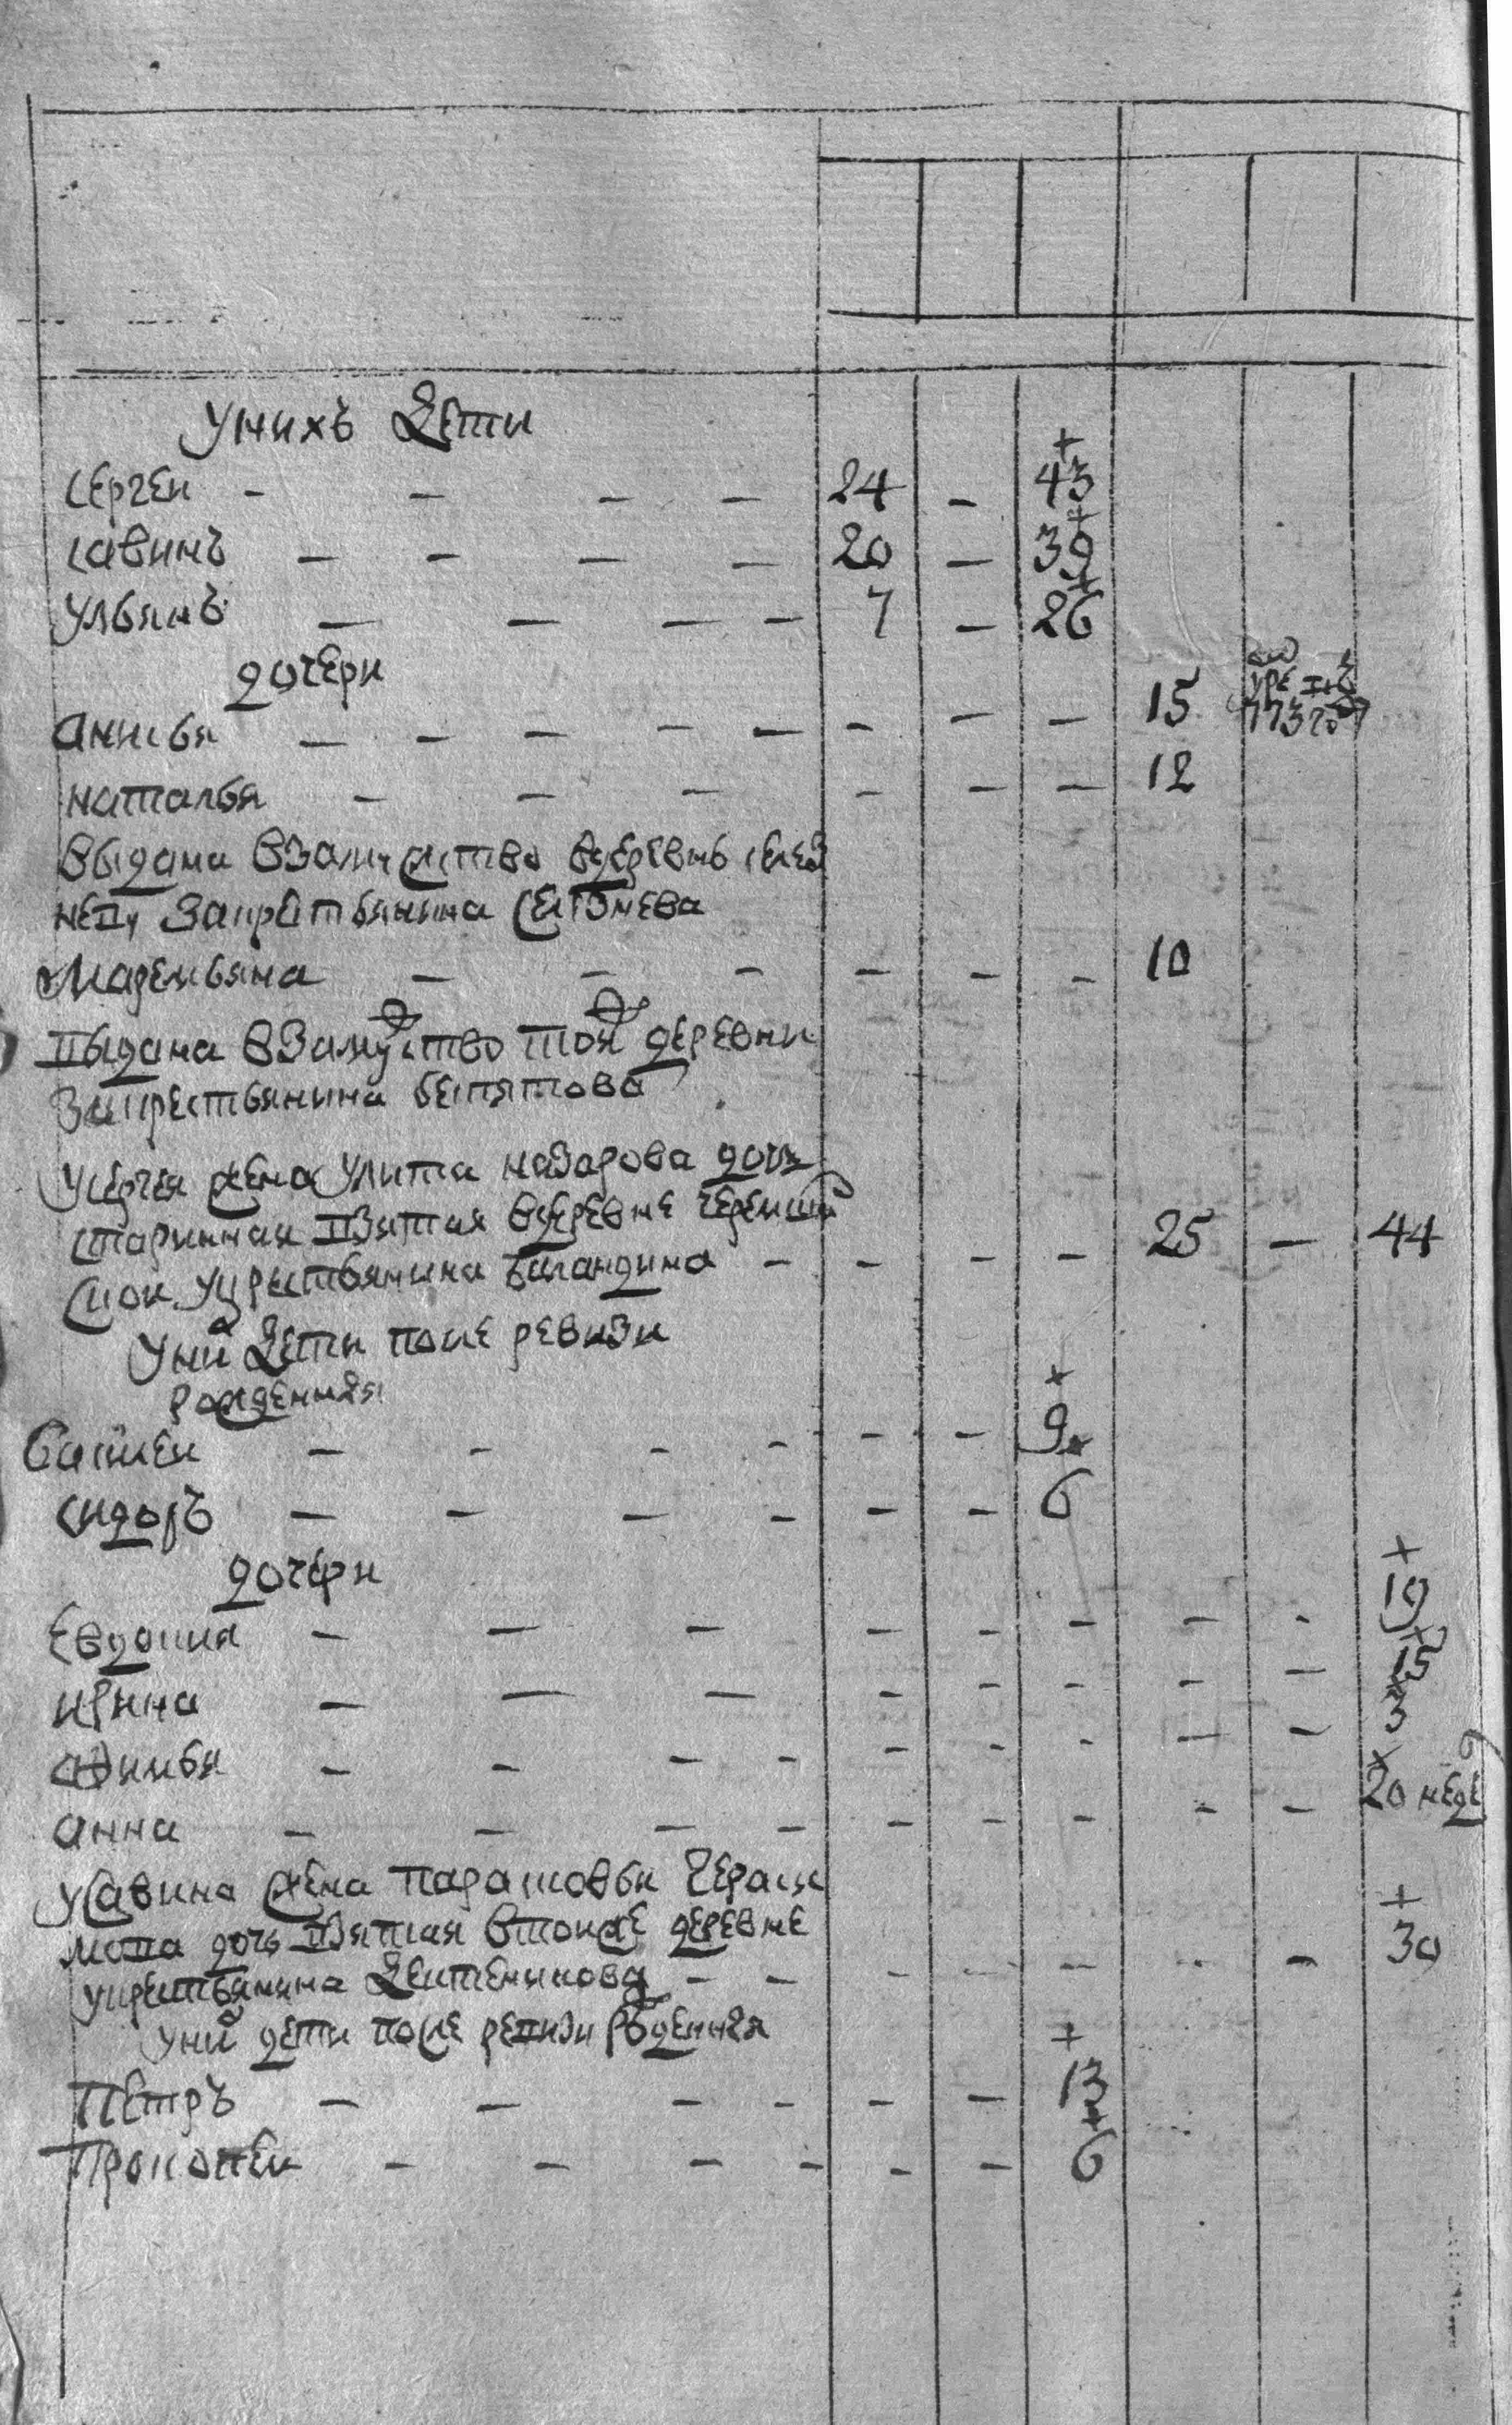 У нихъ дети
Сергеи - - - - 24 - 43
Савинъ - - - - 20 - 39
Ульянъ - - - - 7 - 26
дочери
Анисья - - - - - - - - 15
Наталья - - - - - - 12
выдана взамужство вдеревнь
за крестьянина
Маремьяна - - - - - - 10
выдана взамужство тоя деревни
закрестьянина
У Сергея жена Улита Назарова дочь
старинная взятая вдеревне
укрестьянина - - - - 25 - 44
У них дети после ревизи
рожденныя
- - - - - - 9
Сидоръ - - - - - - 6
дочери
Евдокия - - - - - - - - 19
Ирина - - - - - - - - 15
Афимья - - - - - - - - - 3
Анна - - - - - - - - - 20 неде
У Савина жена Парасковья Гераси
мова дочь взятая втоиже деревне
укрестьянина - - - - - - - 30
У них дети после ревизи рожденныя
Петръ - - - - - - 13
Прокопеи - - - - - - 6